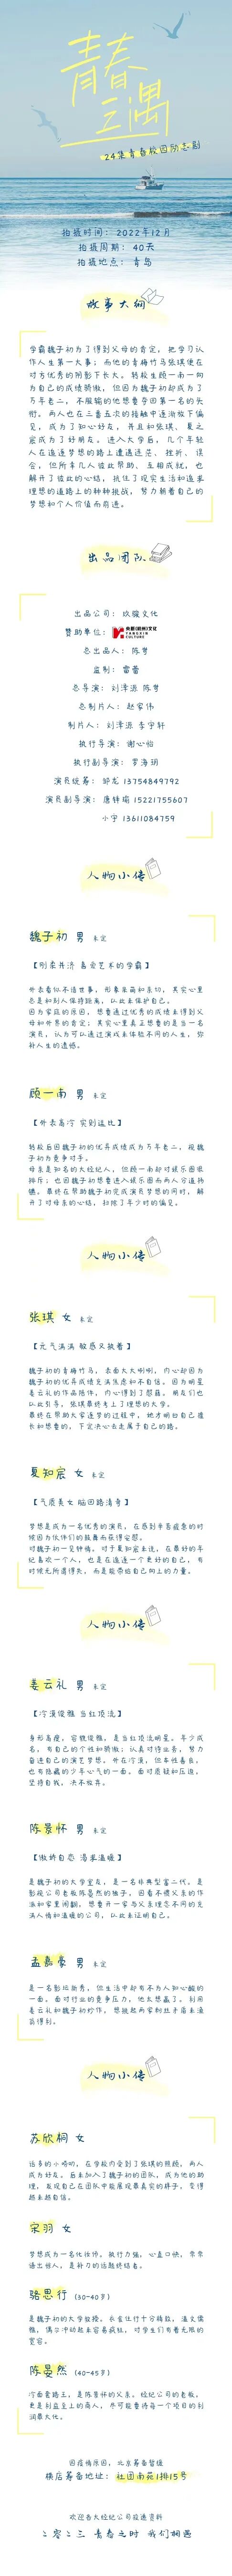 青春三遇
24集青春校园励志剧
拍摄时间：2022年12月
拍摄周期：40天
拍摄地点：青岛
故事大纲
学霸魏子初为了得到父母的肯定，把学习认
作人生第一大事；而他的青梅竹马张琪便在
对方优秀的阴影下长大。转校生顾一南一向
为自己的成绩骄傲，但因为魏子初却成为了
万年老二，不服输的他想要夺回第一名的头
衔。两人也在三番五次的接触中逐渐放下偏
见，成为了知心好友，并且和张琪、夏之
宸成为了好朋友。进入大学后，几个年轻
人在追逐梦想的路上遭遇迷茫、挫折、误
会，但所幸几人彼此帮助、互相成就，也
解开了彼此的心结，抵住了现实生活和追求
理想的道路上的种种挑战，努力朝着自己的
梦想和个人价值而前进。
出品团队
出品公司：玖骏文化
赞助单位：
总出品人：陈梦
监制：雷蕾
总导演：刘泽派 陈梦
总制片人：赵家伟
制片人：刘泽派 李宇轩
执行导演：谢心怡
执行副导演：罗海玥
演员统筹：邹龙 13754849792
演员副导演：唐钟瑜 15221755607
小宇 13611084759
人物小传
魏子初 男 未定
【刚柔并济 喜爱艺术的学霸】
外表看似不谙世事，形象呆萌和亲切，其实心里
总是和别人保持距离，以此来保护自己。
因为家庭的原因，想要通过优秀的成绩来得到父
母和外界的肯定；其实心里真正想要的是当一名
演员，认为可以通过演戏来体验不同的人生，弥
补人生的遗憾。
顾一南 男 未定
【外表高冷 实则逗比】
转校后因魏子初的优异成绩成为万年老二，视魏
子初为竞争对手。
母亲是知名的大经纪人，但顾一南却对娱乐圈很
排斥；也因魏子初想要进入娱乐圈而两人分道扬
镳。最终在帮助魏子初完成演员梦想的同时，解
开了对母亲的心结，扫除了年少时的偏见。
人物小传
张琪 女 未定
【元气满满 敏感又执着】
魏子初的青梅竹马，表面大大咧咧，内心却因为
魏子初的优异成绩充满焦虑和不自信。因为明星
姜云礼的作品陪伴，内心得到了慰藉。朋友们也
以此引导，张琪最终考上了理想的大学。
最终在帮助大家逐梦的过程中，她才明白自己擅
长和想要的，下定决心去走属于自己的路。
夏知宸 女 未定
【气质美女 脑回路清奇】
梦想是成为一名优秀的演员，在感到辛苦疲惫的时
候因为伙伴们的鼓舞而获得安慰。
对魏子初一见钟情。对于夏知宸来说，在最好的年
纪喜欢一个人，也是在追逐一个更好的自己，有
时候无所谓得失，而是能带给自己向上的力量。
人物小传
姜云礼 男 未定
【冷漠俊雅 当红顶流】
身形高瘦，容貌俊雅，是当红顶流明星。年少成
名，有自己的个性和骄傲；认真对待业务，努力
奋进自己的演艺梦想。外在冷漠，但本性善良，
也有隐藏的少年心气的一面。面对质疑和压迫，
坚持自我，决不放弃。
陈景怀 男 未定
【傲娇自恋 渴求温暖】
是魏子初的大学室友，是一名非典型富二代。是
影视公司老板陈曼然的独子，因看不惯父亲的作
派和家里闹翻。想要开一家与父亲理念不同的充
满人情和温暖的公司，以此来证明自己。
孟嘉豪 男 未定
是一名影坛新秀，但生活中却有不为人知心酸的
一面。面对行业的竞争压力，他太想赢了，利用
姜云礼和魏子初炒作，想挑起两家粉丝矛盾来渔
翁得利。
人物小传
苏欣桐 女
话多的小啰叨，在学校内受到了张琪的照顾，两人
成为好友。后来加入了魏子初的团队，成为他的助
理，发现自己在团队中能展现最真实的样子，变得
越来越自信。
宋羽 女
梦想成为一名化妆师，执行力强，心直口快，常常
语出惊人，是补刀的话题终结者。
骆思行 (30-40岁)
是魏子初的大学教授，长言仕行十分精致，温文儒
雅，偶尔冲动起来容易疯狂，对学生们有着无限的
宽容。
陈曼然 (40-45岁)
冷面索路王，是陈景怀的父亲，经纪公司的老板，
更是利益至上的商人，尽可能要将每一个项目的利
润最大化。
因疫情原因，北京筹备暂缓
横店筹备地址：社团南苑1排15号
欢迎各大经纪公司投递资料
二零二三 青春之时 我们相遇